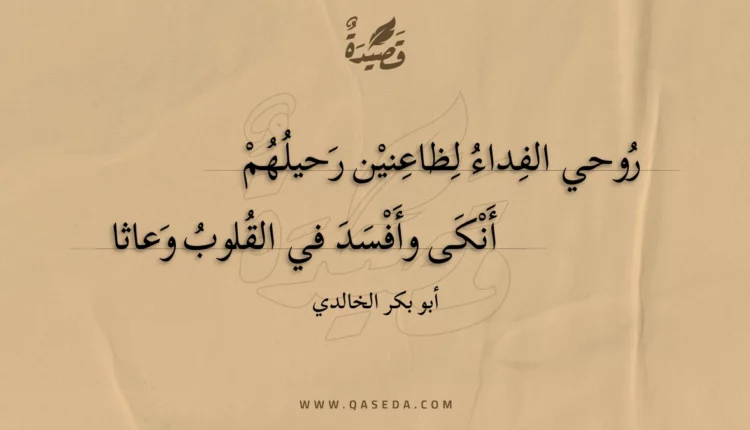 قَصِيدَةٌ
رُوحي الفِداءُ لِظاعِنيْن رَحيلُهُمْ
أَنْكَى وأَفْسَدَ في القُلوبُ وَعاثا
أبو بكر الخالدي
WWW.QASEDA.COM